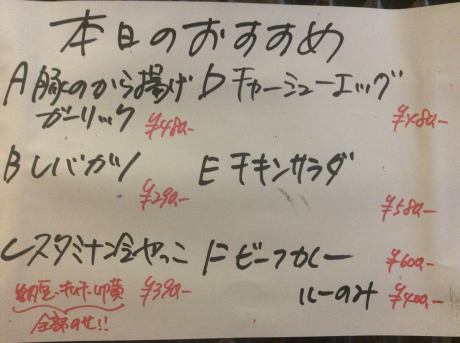 本日のおすすめ
A 豚のから揚げ
ガーリック
¥480-
D チャーシューエッグ
¥480-
B レバカツ
¥290-
E チキンサラダ
¥580-
C スタミナ冷やっこ
¥390-
納豆・キムチ・卵黄
全部のせ!!
F ビーフカレー
¥600-
ルーのみ ¥400-